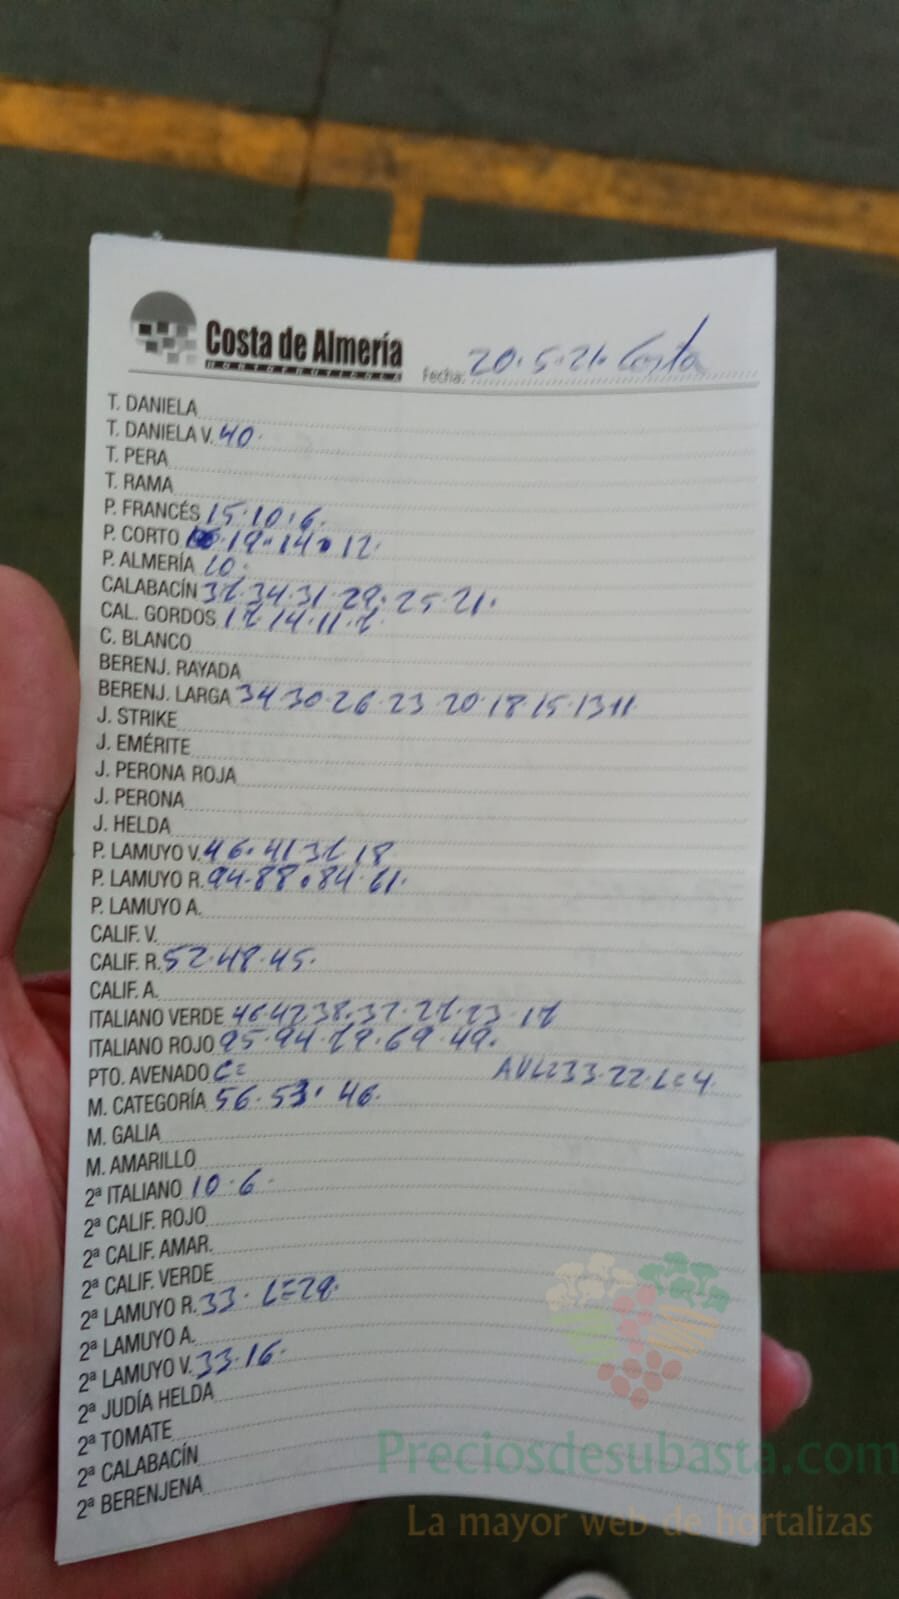 Costa de Almería
HORTOFRUTÍCOLA
Fecha: 20.5.21. Costa
T. DANIELA
T. DANIELA V. 40.
T. PERA
T. RAMA
P. FRANCÉS 15.10.6.
P. CORTO 19.14.12.
P. ALMERÍA 10.
CALABACÍN 37.34.31.29.25.21.
CAL. GORDOS 17.14.11.7.
C. BLANCO
BERENJ. RAYADA
BERENJ. LARGA 34.30.26.23.20.18.15.13.11
J. STRIKE
J. EMÉRITE
J. PERONA ROJA
J. PERONA
J. HELDA
P. LAMUYO V. 46.41 37 18
P. LAMUYO R. 94.88.84.61.
P. LAMUYO A.
CALIF. V.
CALIF. R. 52.48.45.
CALIF. A.
ITALIANO VERDE 46.42 38.32.27.23.17
ITALIANO ROJO 95.94.79.69.49.
PTO. AVENADO C= AVL=33.22.L=4.
M. CATEGORÍA 56.53.46.
M. GALIA
M. AMARILLO
2ª ITALIANO 10.6.
2ª CALIF. ROJO
2ª CALIF. AMAR.
2ª CALIF. VERDE
2ª LAMUYO R. 33. L=29.
2ª LAMUYO A.
2ª LAMUYO V. 33.16.
2ª JUDÍA HELDA
2ª TOMATE
2ª CALABACÍN
2ª BERENJENA
Preciosdesubasta.com
La mayor web de hortalizas